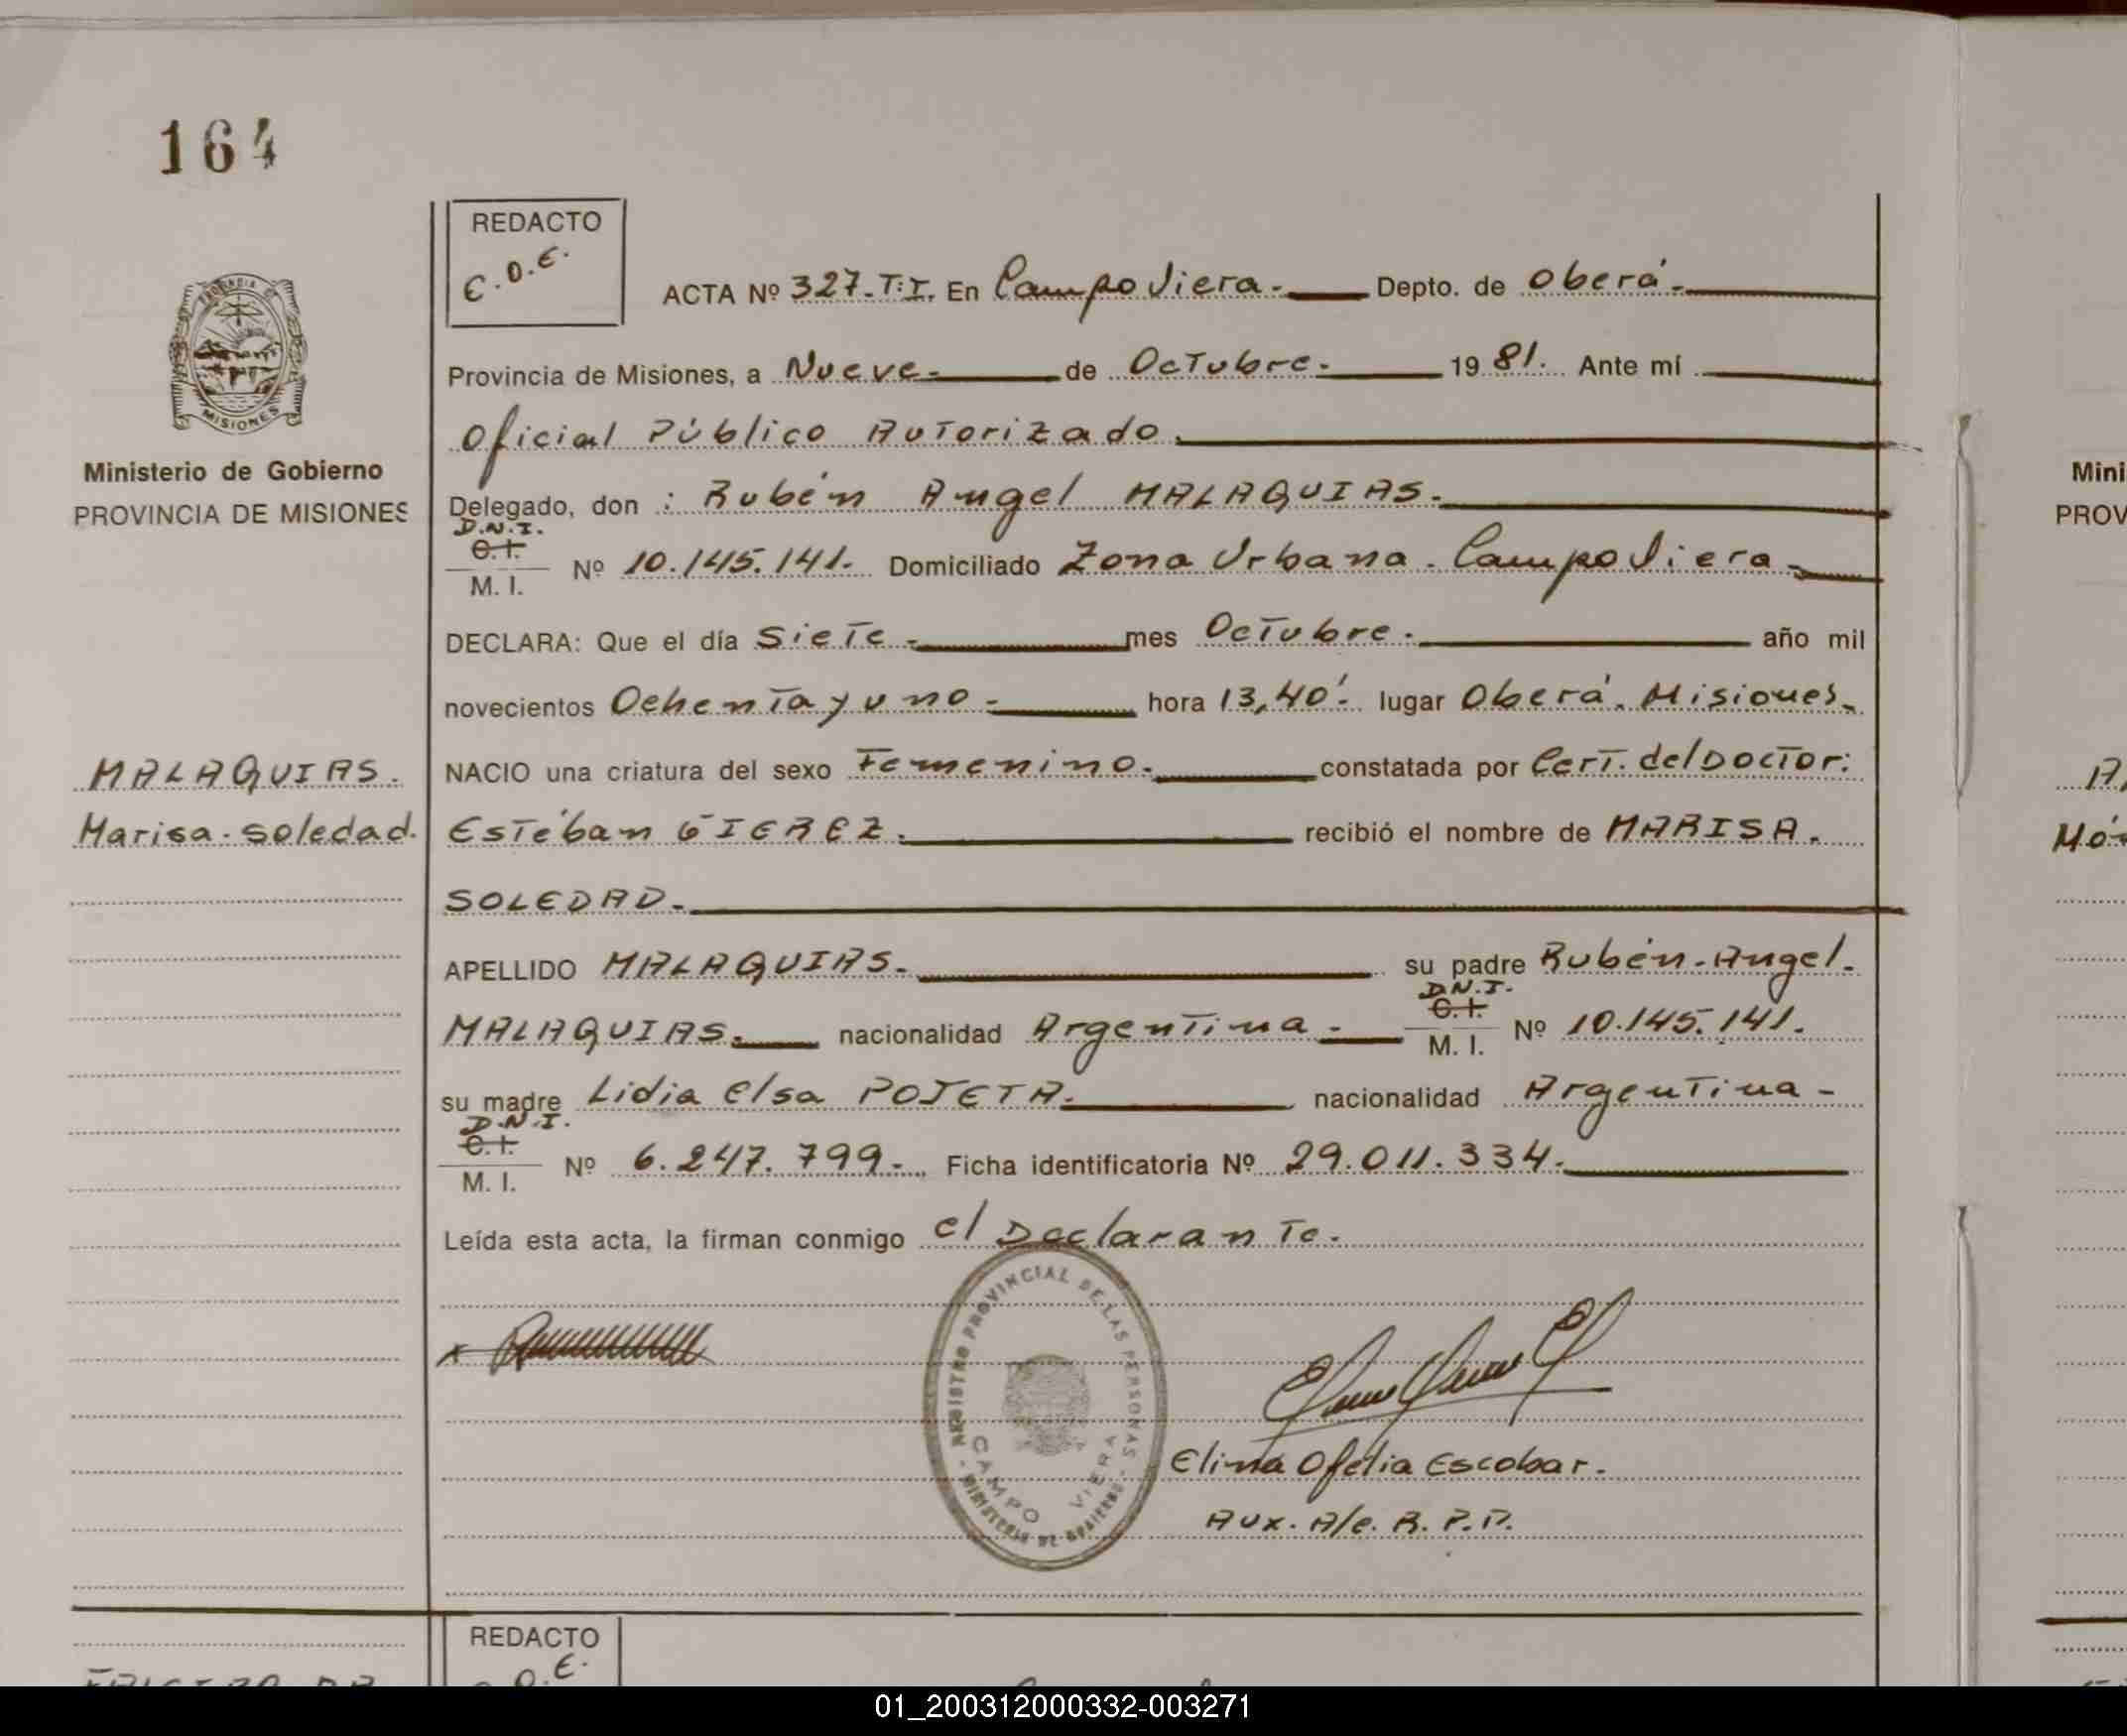 164
REDACTO
E.O.E.
ACTA Nº 327.T:I. En Campo Viera.- Depto. de Oberá.-
Provincia de Misiones, a Nueve.- de Octubre.- 1981. Ante mí
Oficial Público Autorizado.
Delegado, don : Rubén Angel MALAQUIAS.-
D.N.I.
C.I.
M. I. Nº 10.145.141.- Domiciliado Zona Urbana. Campo Viera.-
DECLARA: Que el día Siete.- mes Octubre.- año mil
novecientos Ochenta y uno.- hora 13,40'.- lugar Oberá. Misiones.-
NACIO una criatura del sexo Femenino.- constatada por Cert. del Doctor:
Estéban GIEREZ.- recibió el nombre de MARISA.
SOLEDAD.-
APELLIDO MALAQUIAS.- su padre Rubén-Angel.
MALAQUIAS.- nacionalidad Argentina.- D.N.I.
C.I.
M. I. Nº 10.145.141.
su madre Lidia Elsa POJETA.- nacionalidad Argentina-
D.N.I.
C.I.
M. I. Nº 6.247.799.- Ficha identificatoria Nº 29.011.334.-
Leída esta acta, la firman conmigo el Declarante.
PROVINCIA DE
MISIONES
Ministerio de Gobierno
PROVINCIA DE MISIONES
MALAQUIAS.
Marisa-Soledad.
REGISTRO PROVINCIAL DE LAS PERSONAS
CAMPO VIERA
MINISTERIO DE GOBIERNO
Elina Ofelia Escobar.
Aux. A/c. R. P. P.
REDACTO
O.E.
Mini
PROV
Mó
01_200312000332-003271